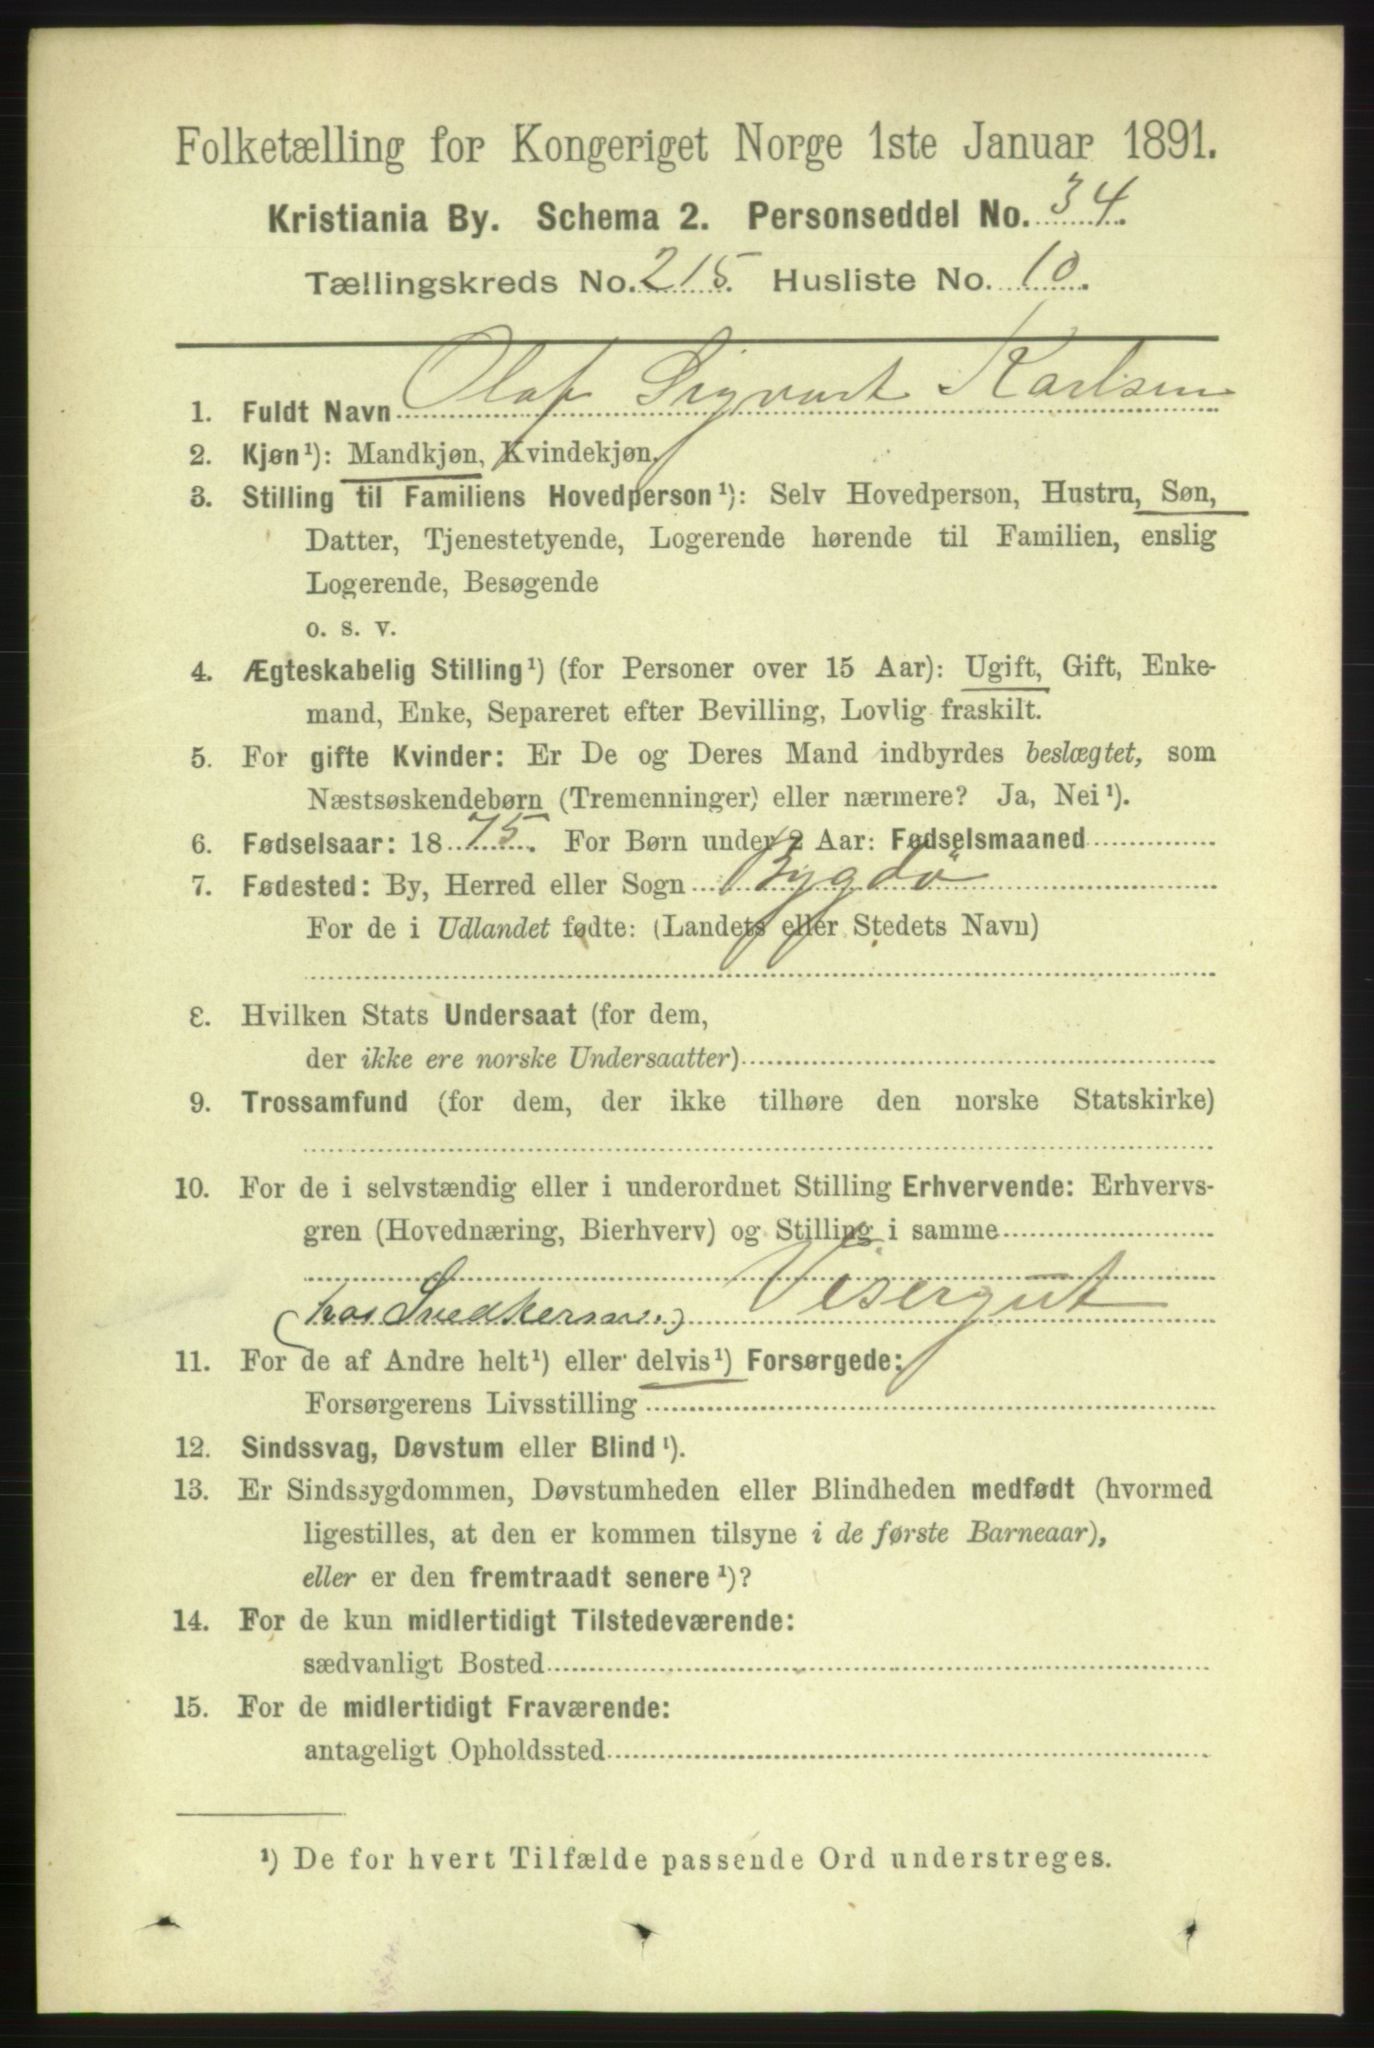 Folketælling for Kongeriget Norge 1ste Januar 1891.
Kristiania By. Schema 2. Personseddel No. 34.
Tællingskreds No. 215. Husliste No. 10.
1. Fuldt Navn Olaf Sigvart Karlsen
2. Kjøn¹): Mandkjøn, Kvindekjøn.
3. Stilling til Familiens Hovedperson¹): Selv Hovedperson, Hustru, Søn,
Datter, Tjenestetyende, Logerende hørende til Familien, enslig
Logerende, Besøgende
o. s. v.
4. Ægteskabelig Stilling¹) (for Personer over 15 Aar): Ugift, Gift, Enke-
mand, Enke, Separeret efter Bevilling, Lovlig fraskilt.
5. For gifte Kvinder: Er De og Deres Mand indbyrdes beslægtet, som
Næstsøskendebørn (Tremenninger) eller nærmere? Ja, Nei¹).
6. Fødselsaar: 1875. For Børn under 2 Aar: Fødselsmaaned
7. Fødested: By, Herred eller Sogn Bygdö
For de i Udlandet fødte: (Landets eller Stedets Navn)
8. Hvilken Stats Undersaat (for dem,
der ikke ere norske Undersaatter)
9. Trossamfund (for dem, der ikke tilhøre den norske Statskirke)
10. For de i selvstændig eller i underordnet Stilling Erhvervende: Erhvervs-
gren (Hovednæring, Bierhverv) og Stilling i samme
(hos Snedkersv.) Visergut
11. For de af Andre helt¹) eller delvis¹) Forsørgede:
Forsørgerens Livsstilling
12. Sindssvag, Døvstum eller Blind¹).
13. Er Sindssygdommen, Døvstumheden eller Blindheden medfødt (hvormed
ligestilles, at den er kommen tilsyne i de første Barneaar),
eller er den fremtraadt senere¹)?
14. For de kun midlertidigt Tilstedeværende:
sædvanligt Bosted
15. For de midlertidigt Fraværende:
antageligt Opholdssted
¹) De for hvert Tilfælde passende Ord understreges.